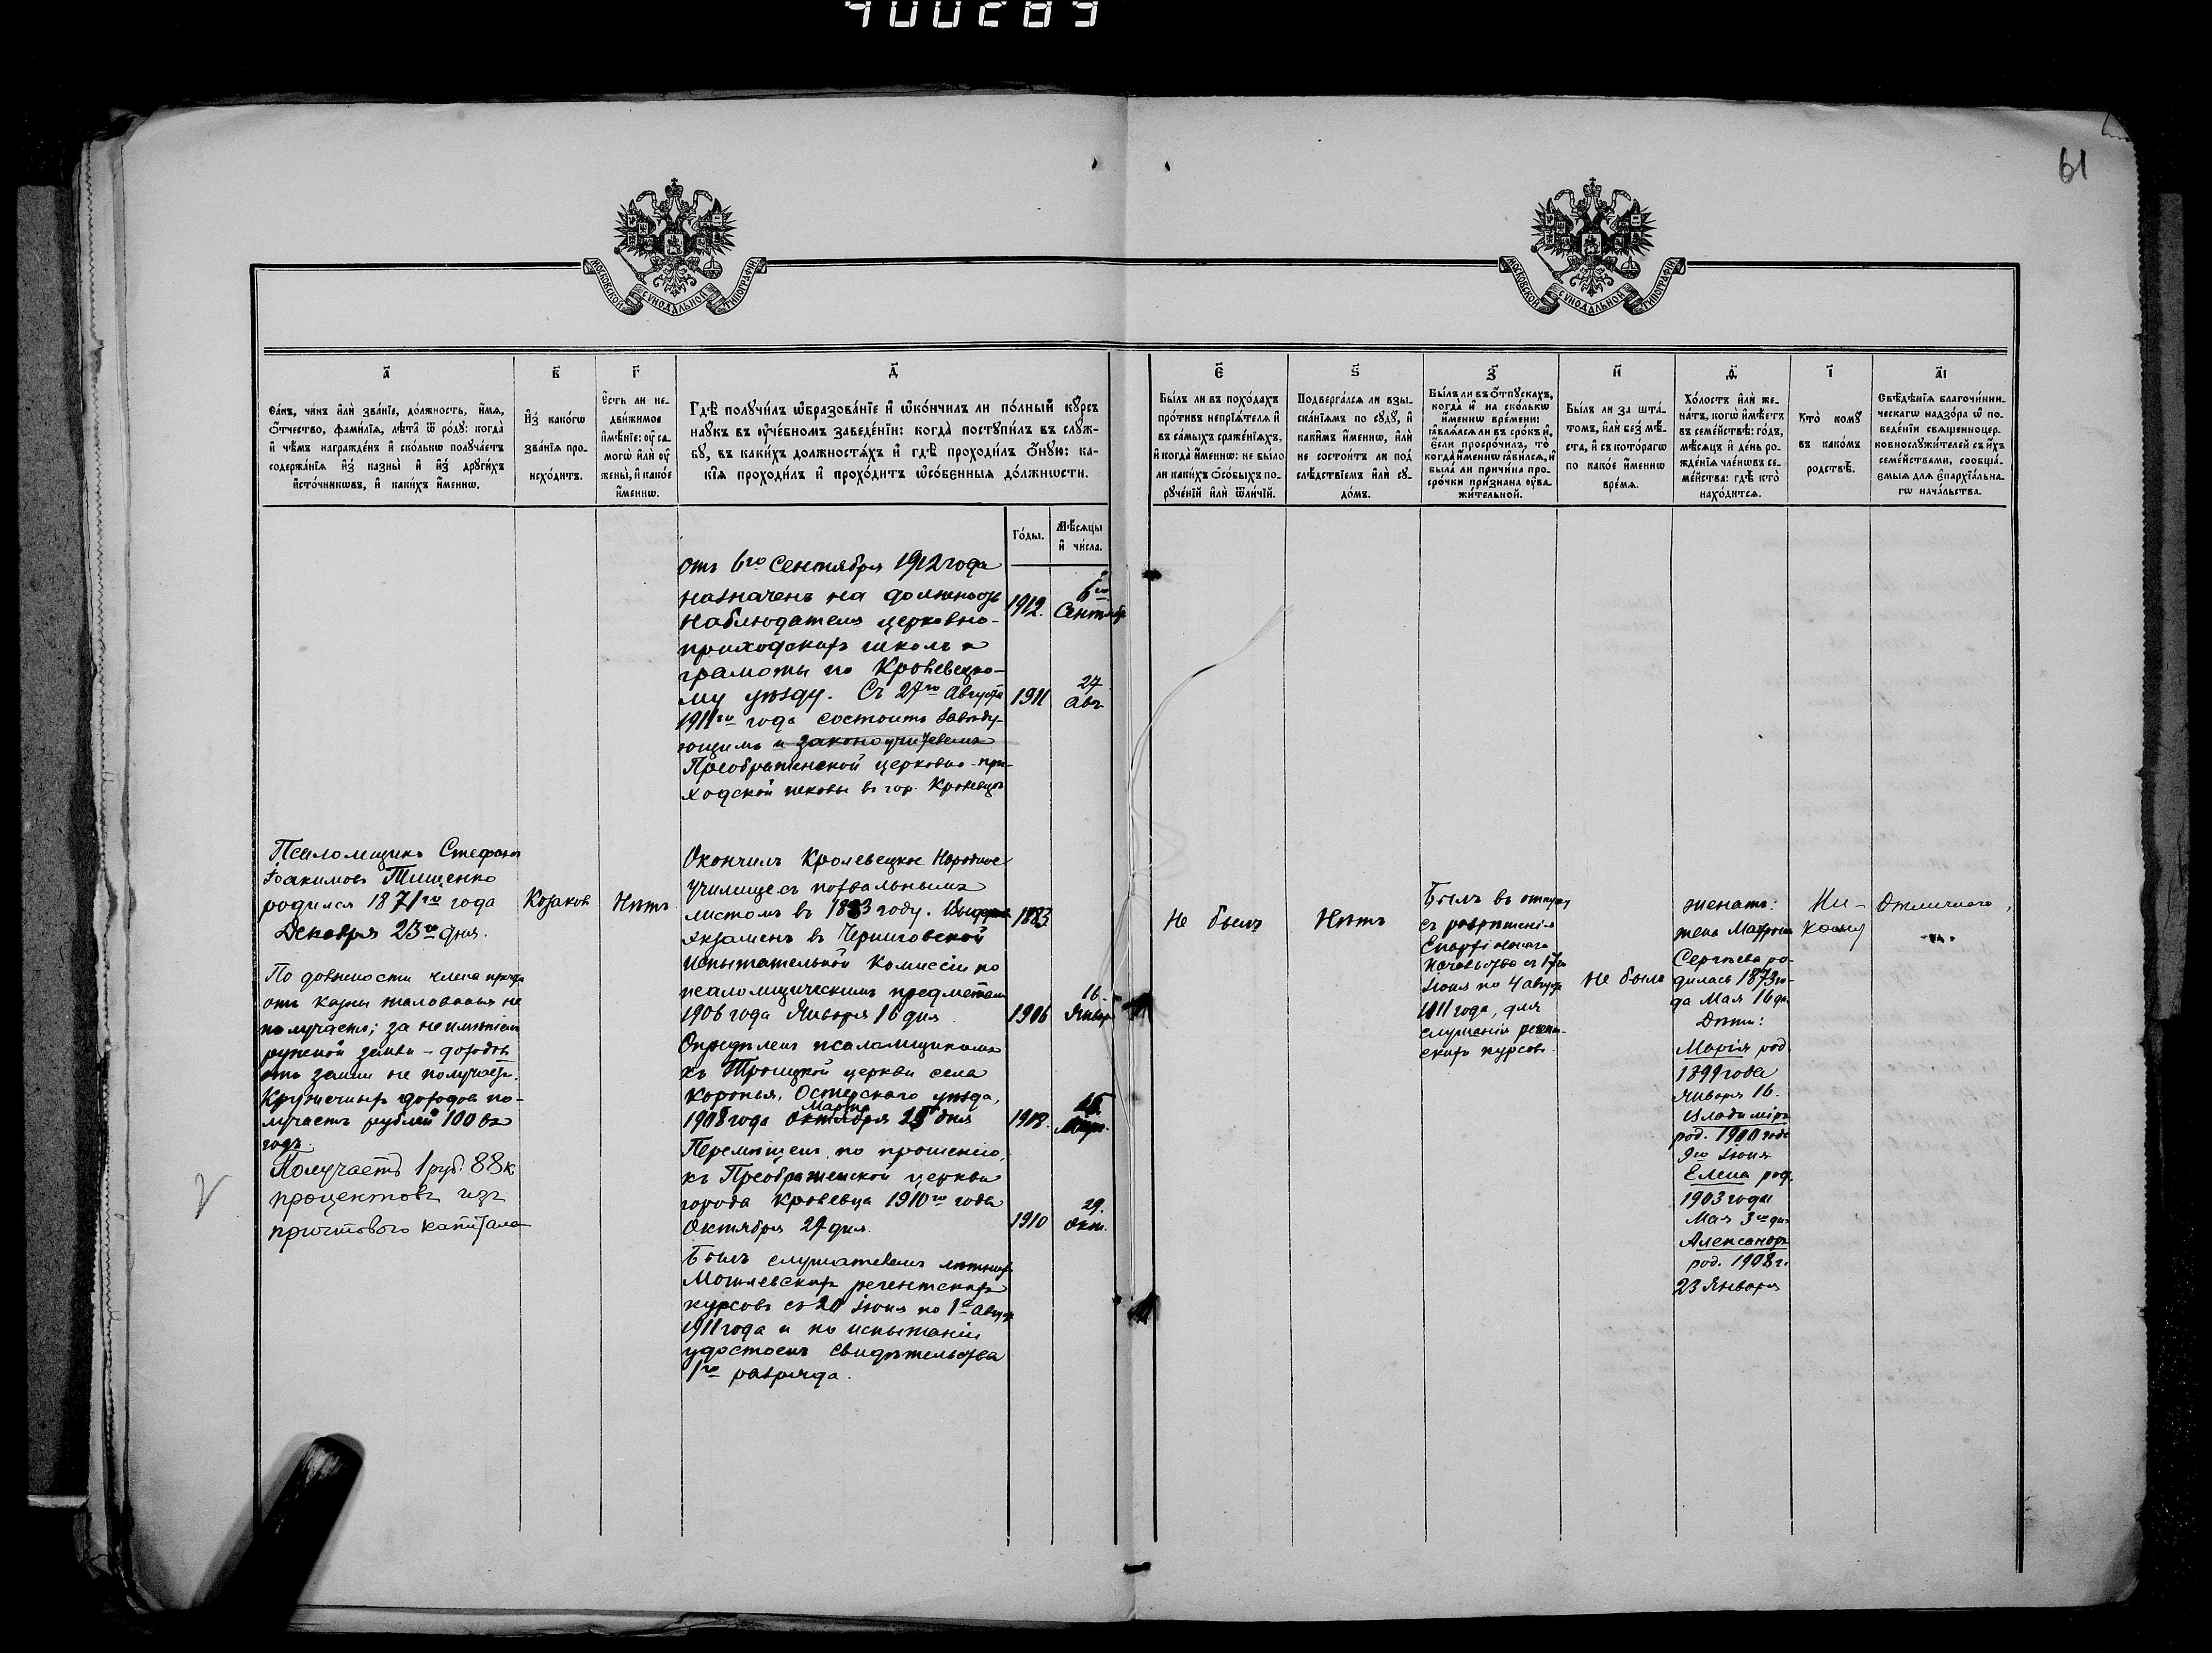 61
МОСКОВСКОЙ СѴНОДАЛЬНОЙ ТИПОГРАФІИ
МОСКОВСКОЙ СѴНОДАЛЬНОЙ ТИПОГРАФІИ
а҃
Са́нъ, чи́нъ и҆лѝ зва́нїе, до́лжность, и҆́мѧ,
ѻ҆́тчество, фами́лїѧ, лѣ́та ѿ ро́дꙋ: когда̀
и҆ чѣ́мъ награжде́нъ и҆ ско́лькѡ полꙋча́етъ
содержа́нїѧ и҆з̾ казны̀ и҆ и҆з̾ дрꙋги́хъ
и҆сто́чникѡвъ, и҆ каки́хъ и҆́меннѡ.
в҃
И҆з̾ како́гѡ
зва́нїѧ про-
исхо́дитъ.
г҃
Є҆́сть ли не-
дви́жимое
и҆мѣ́нїе: оу҆ са-
могѡ̀ и҆лѝ оу҆
жены̀, и҆ како́е
и҆́меннѡ.
д҃
Гдѣ̀ полꙋчи́лъ ѡ҆бразова́нїе и҆ ѡ҆ко́нчилъ ли по́лный кꙋ́рсъ
наꙋ́къ въ оу҆че́бномъ заведе́нїи: когда̀ постꙋпи́лъ въ слꙋ́ж-
бꙋ, въ каки́хъ должностѧ́хъ и҆ гдѣ̀ проходи́лъ ѻ҆́нꙋю: ка-
кі́ѧ проходи́лъ и҆ прохо́дитъ ѡ҆со́бенныѧ до́лжнѡсти.
Го́ды.
Мѣ́сѧцы
и҆ чи́сла.
є҃
Бы́лъ ли въ похо́дахъ
про́тивъ непрїѧ́телѧ и҆
въ са́мыхъ сраже́нїѧхъ,
и҆ когда̀ и҆́меннѡ: не бы́ло
ли каки́хъ ѻ҆со́быхъ по-
рꙋче́нїй и҆лѝ ѿли́чїй.
ѕ҃
Подверга́лсѧ ли взы-
ска́нїѧмъ по сꙋдꙋ̀, и҆
каки́мъ и҆́меннѡ, и҆лѝ
не состои́тъ ли под̾
слѣ́дствїемъ и҆лѝ сꙋ-
до́мъ.
з҃
Бы́лъ ли въ ѻ҆́тпꙋскахъ,
когда̀ и҆ на ско́лькѡ
и҆́меннѡ вре́мени:
ꙗ҆влѧ́лсѧ ли въ сро́къ и҆,
є҆́сли просро́чилъ, то̀
когда̀ и҆́меннѡ ꙗ҆ви́лсѧ, и҆
была̀ ли причи́на про-
сро́чки при́знана оу҆ва-
жи́тельной.
и҃
Бы́лъ ли за шта́-
томъ, и҆лѝ без̾ мѣ́-
ста, и҆ съ кото́рагѡ
по како́е и҆́меннѡ
вре́мѧ.
ѳ҃
Хо́лостъ и҆лѝ же-
на́тъ, когѡ̀ и҆мѣ́етъ
въ семе́йствѣ: го́дъ,
мѣ́сѧцъ и҆ де́нь ро-
жде́нїѧ чле́нѡвъ се-
ме́йства: гдѣ̀ кто̀
нахо́дитсѧ.
і҃
Кто̀ комꙋ̀
въ како́мъ
родствѣ̀.
а҃і
Свѣ́дѣнїѧ благочи́нни-
ческагѡ надзо́ра ѡ҆ по-
веде́нїи свѧщенноцер-
ковнослꙋжи́телей съ и҆́хъ
семе́йствами, сообща́-
емыѧ длѧ є҆парх̾їа́льна-
гѡ нача́льства.
отъ 6го Сентября 1912 года
назначенъ на должность
наблюдателя церковно-
приходскихъ школъ и
грамоты по Кролевецко-
му уѣзду. Съ 27го Августа
1911го года состоитъ завѣду-
ющимъ и законоучителемъ
Преображенской церковно-при-
ходской школы въ гор. Кролевцѣ
1912.
6го
Сентябр
1911
27
Авг.
Псаломщикъ Стефанъ
Іоакимовъ Тищенко
родился 1871го года
Декабря 23го дня.
По должности члена причта
отъ казны жалованья не
получаетъ; за неимѣніемъ
ружной земли – доходовъ
отъ земли не получаетъ.
Кружечныхъ доходовъ по-
лучаетъ рублей 100 въ
годъ.
Получаетъ 1 руб. 88 к
процентовъ изъ
причтоваго капитала
Козаковъ
Нѣтъ
Окончилъ Кролевецкое Народное
училище съ похвальнымъ
листомъ въ 1883 году. Выдержалъ
экзаменъ въ Черниговской
Испытательной Комиссіи по
псаломщическимъ предметамъ
1906 года Января 16 дня
Опредѣленъ псаломщикомъ
къ Троицкой церкви села
Коропья, Остерскаго уѣзда,
Марта
1908 года Октября 25 дня
Перемѣщенъ, по прошенію,
къ Преображенской церкви
города Кролевца 1910го года
Октября 29 дня.
Былъ слушателемъ лѣтнихъ
Могилевскихъ регентскихъ
курсовъ съ 20 Іюня по 1е Августа
1911 года и по испытаніи
удостоенъ свидѣтельства
1го разряда.
1883
1906
16.
Январ
1908.
Март.
1910
29.
Окт.
Не былъ
Нѣтъ
Былъ въ отпуску
съ разрѣшенія
Епархіальнаго
Начальства съ 17го
Іюня по 4 августа
1911 года, для
слушанія регент-
скихъ курсовъ.
Не былъ
женатъ:
жена Матрона
Сергѣева ро-
дилась 1873 го-
да Мая 16 дня
Дѣти:
Марія род.
1899 года
Января 16.
Владиміръ
род. 1900 года
9го Іюня
Елена род.
1903 года
Мая 3го дня
Александръ
род. 1908 г.
23 Января
Ни-
кому
Отличнаго,